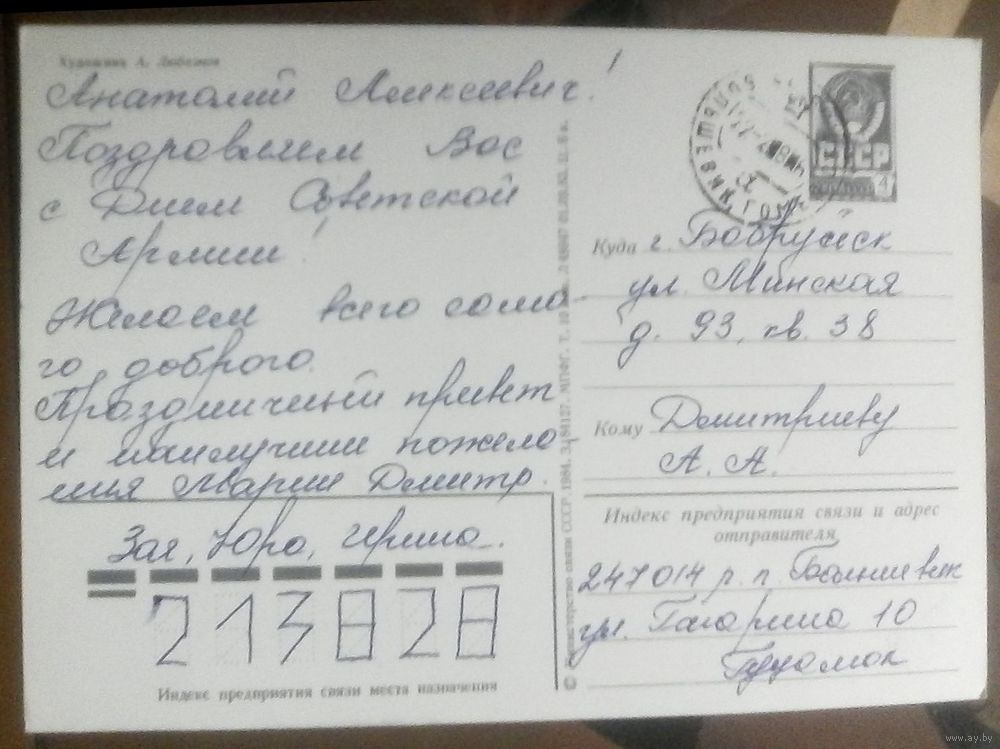 Художник А. Любезнов
Анатолий Алексеевич!
Поздравляем Вас
с Днем Советской
Армии!
Желаем всего само-
го доброго.
Праздничный привет
и наилучшие пожела-
ния Марии Дмитр.
Зая, Юра, Ирина.
213828
Индекс предприятия связи места назначения
СССР
4
Куда г. Бобруйск
ул. Минская
д. 93, кв. 38
Кому Дмитриеву
А. А.
Индекс предприятия связи и адрес
отправителя
247014 р. п. Большевик
ул. Гагарина 10
www.ay.by